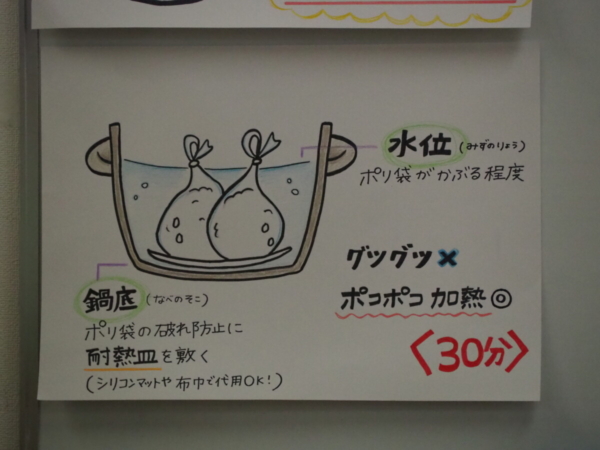 水位(みずのりょう)
ポリ袋がかぶる程度
グツグツ×
ポコポコ加熱◎
〈30分〉
鍋底(なべのそこ)
ポリ袋の破れ防止に
耐熱皿を敷く
(シリコンマットや布巾で代用OK!)